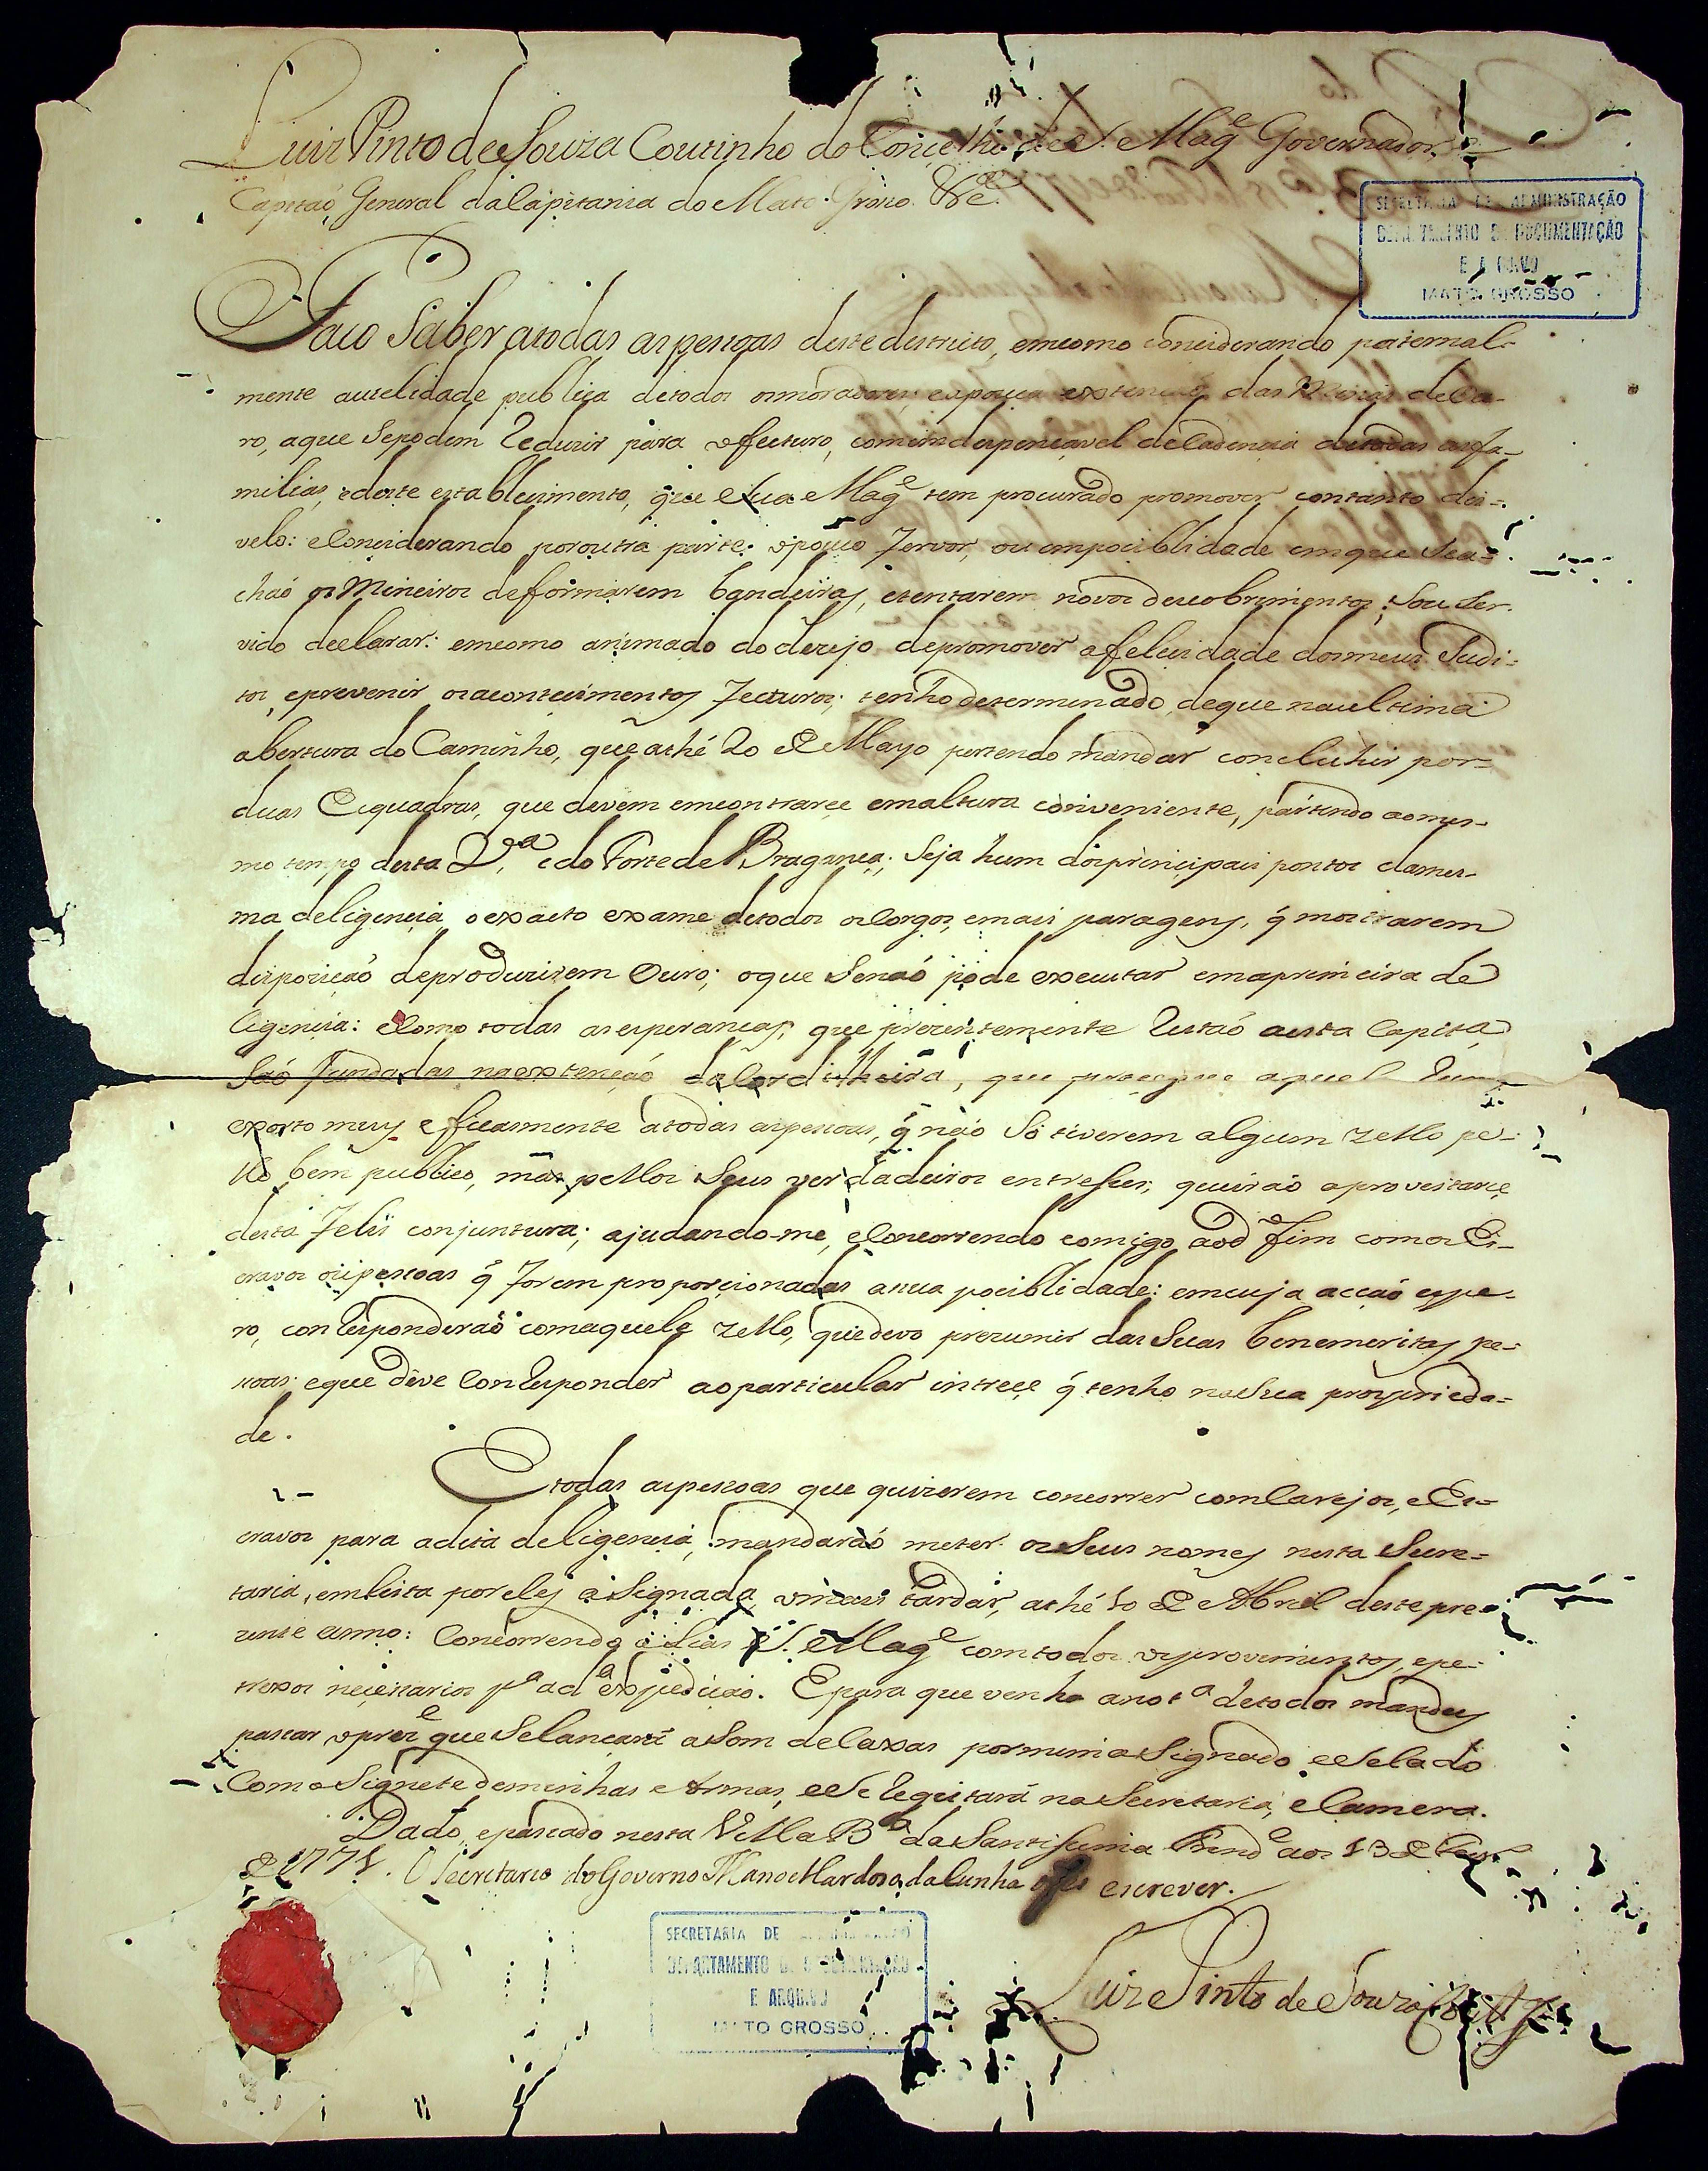 Luiz Pinto de Souza Coutinho do Concelho de S. Mag.e Governador, e
Capitaõ General da Capitania do Mato Groso &.ª
Faço Saber atodas as pessoas deste destricto, emcomo conciderando paternal-
mente autelidade publica detodos osmoradores; eapouca extenção das Minas de Ou-
ro, aque Sepodem Reduzir para ofecturo, comemdespençavel deCadencia detodas asfa-
milias, edeste estableçimento, que Sua Mag.e tem procurado promover contanto des-
velo: eConciderando poroutra parte; opouco Fervor, ou empociblidade emque Sea-
chaõ os Mineiros deformarem bandeiras, etentarem novos descobrimentos; Sou Ser-
vido declarar: emcomo animado do dezejo depromover afelicidade dosmeus Sudi-
tos, eprevenir osacontecimentos Fecturos; tenho determinado, deque naultima
abertura do Caminho, que athé 20 de Mayo pertendo mandar concluhir por
duas Esquadras, que devem emcontrarçe emaltura conveniente, partindo aomes-
mo tempo desta V.ª, edo Forte de Bragança; Seja hum dosprincipais pontos damês-
ma deligencia, oexacto exame detodos osCorgos, emais paragens, q̃ mostrarem
dispoziçaõ deproduzirem Ouro; oque Senaõ póde executar emaprimeira de
ligencia: eComo todas asesperanças, que prezentemente Restaõ aesta Capita
Saõ fundadas naextençaõ da Cordilheira, que
exorto muy eficasmente atodas aspessoas, q̃ não Só tiverem algum zello pe-
llo bem publico, más pellos Seus verdadeiros entresses; queiraõ aproveitarçe
desta Felis conjuntura; ajudando-me, eConcorrendo comigo aod.º fim comos Es-
cravos oupessoas q̃ Forem proporcionadas asua pociblidade: emcuja acçaõ espe-
ro, conResponderaõ comaquele zello, quedevo prezumir das Suas benemeritas pe-
ssoas: eque deve ConResponder aoparticular intreçe q̃ tenho naSua prosprieda-
de.
Etodas aspessoas que quizerem concorrer comCarejos, eEs-
cravos para adita deligencia, mandaráõ meter os Seus nomes nesta Secre-
taria, emlista porelês aSignada, omais tardar, athé 10 de Abril deste pre-
zente anno: Concorrendo S. Mag.e comtodos osprovimentos, epe-
trexos neceçarios p.ª ad.ª expediçaõ. Epara que venha anot.ª detodos mandey
passar oprez.e que Selançará aSom deCaxas pormim aSignado, eSelado
Com oSignete deminhas Armas, eSeRegistará na Secretaria, eCamera.
Dado, epassado nesta Villa B.ª da Santissima Trind.e aos 13 de
de 1771. O Secretario do Governo Manoel Cardoso da Cunha o fes escrever.
Luiz Pinto de Souza Cout.º
SECRETARIA DE ADMINISTRAÇÃO
DEPARTAMENTO DE DOCUMENTAÇÃO
E ARQUIVO
MATO GROSSO
SECRETARIA DE ADMINISTRAÇÃO
DEPARTAMENTO DE DOCUMENTAÇÃO
E ARQUIVO
MATO GROSSO